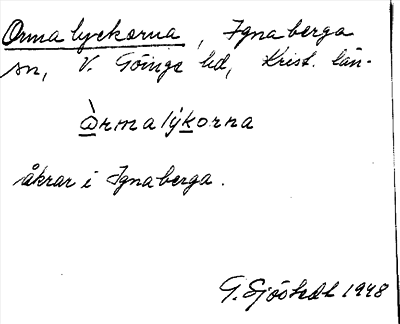 Ormalyckorna, Ignaberga
sn, V. Göinge hd, Krist. län.
òrmalýkorna
åkrar i Ignaberga.
G. Sjöstedt 1948